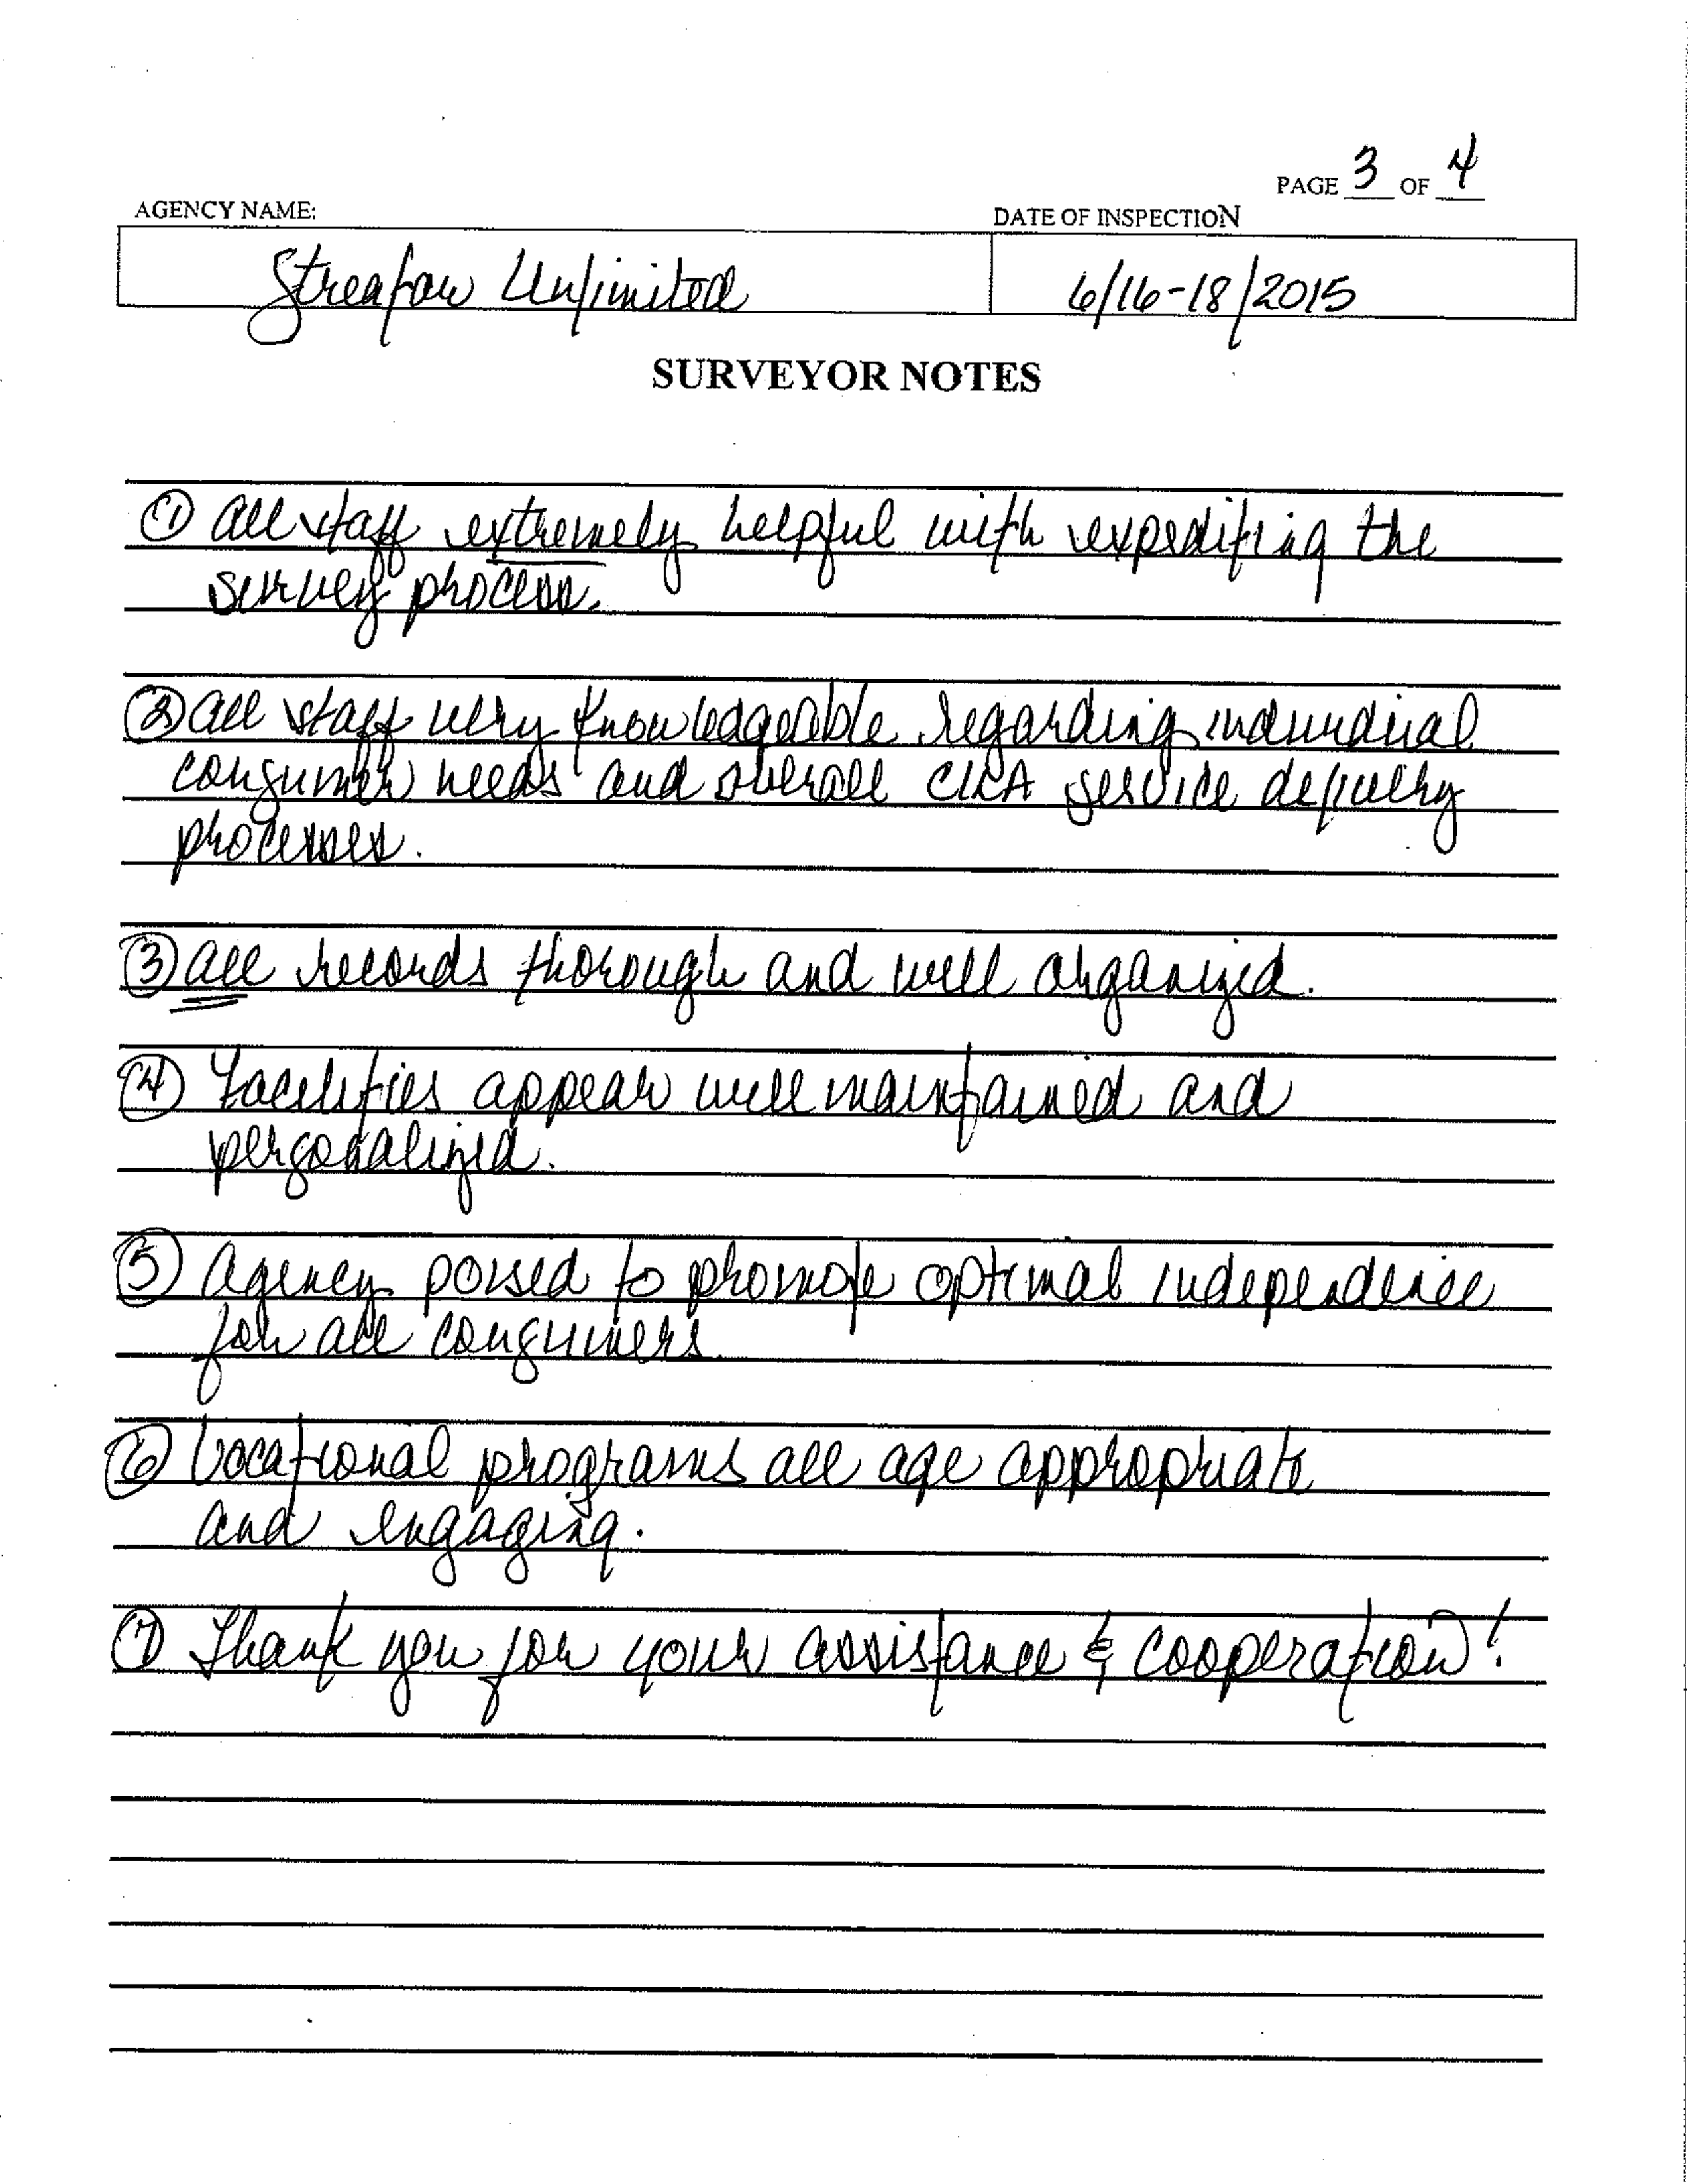 PAGE 3 OF 4
AGENCY NAME:
DATE OF INSPECTION
Streator Unlimited
6/16-18/2015
SURVEYOR NOTES
① All staff extremely helpful with expediting the
survey process.
② All staff very knowledgeable regarding individual
consumer needs and overall CILA service delivery
processes.
③ All records thorough and well organized.
④ Facilities appear well maintained and
personalized.
⑤ Agency poised to promote optimal independence
for all consumers.
⑥ Vocational programs all age appropriate
and engaging.
⑦ Thank you for your assistance & cooperation!